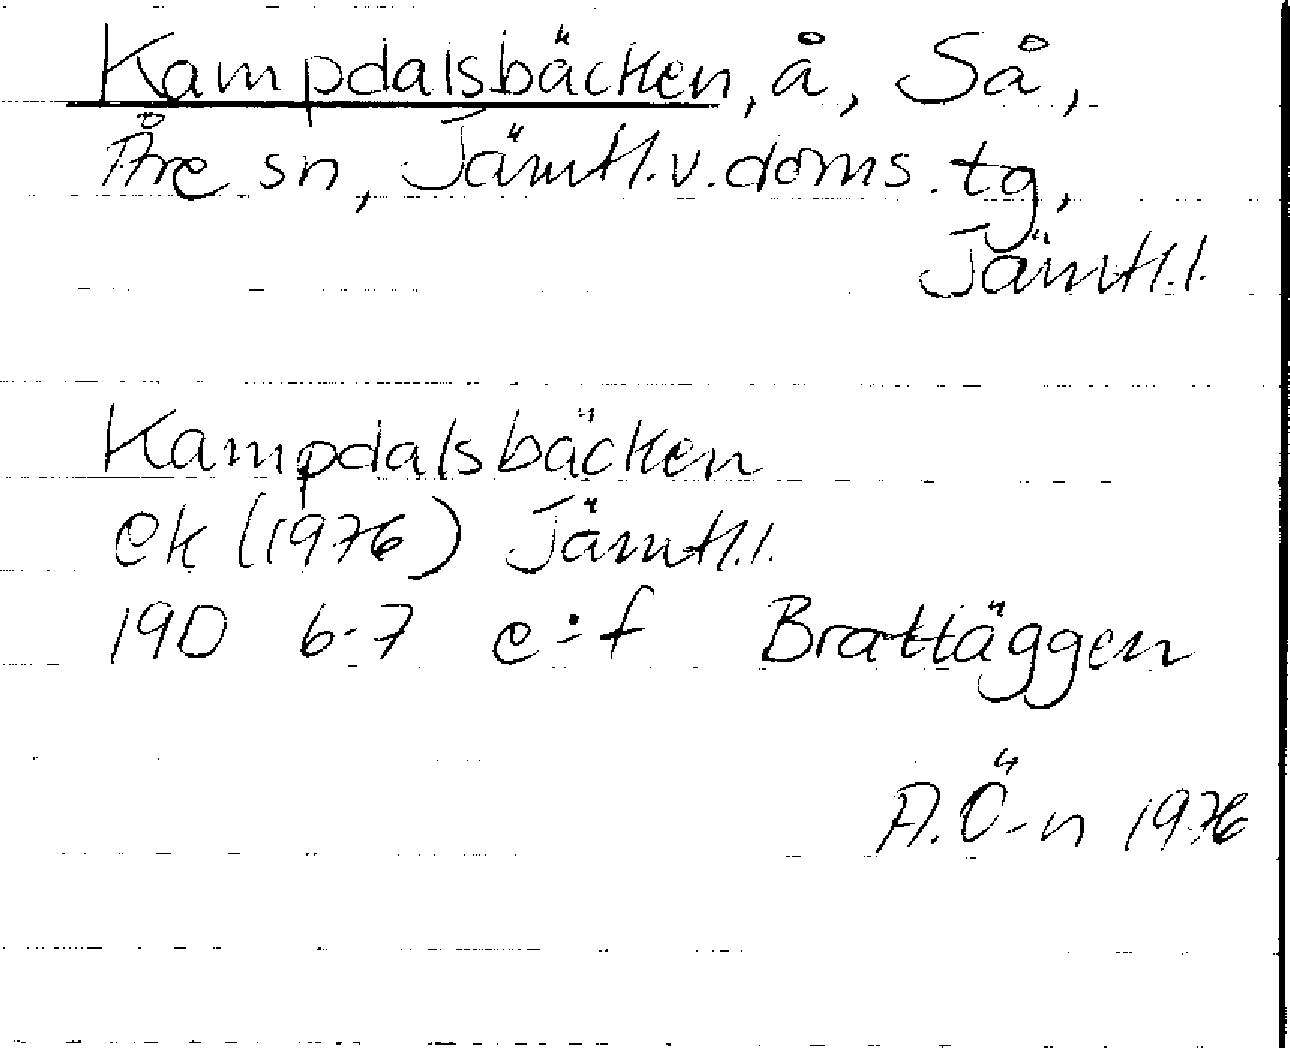 Kampdalsbäcken, å, Så,
Åre sn, Jämtl.v.doms.tg,
Jämtl.l.
Kampdalsbäcken
ek (1976) Jämtl.l.
19D 6-7 e÷f Brattäggen
A.Ö-n 1976